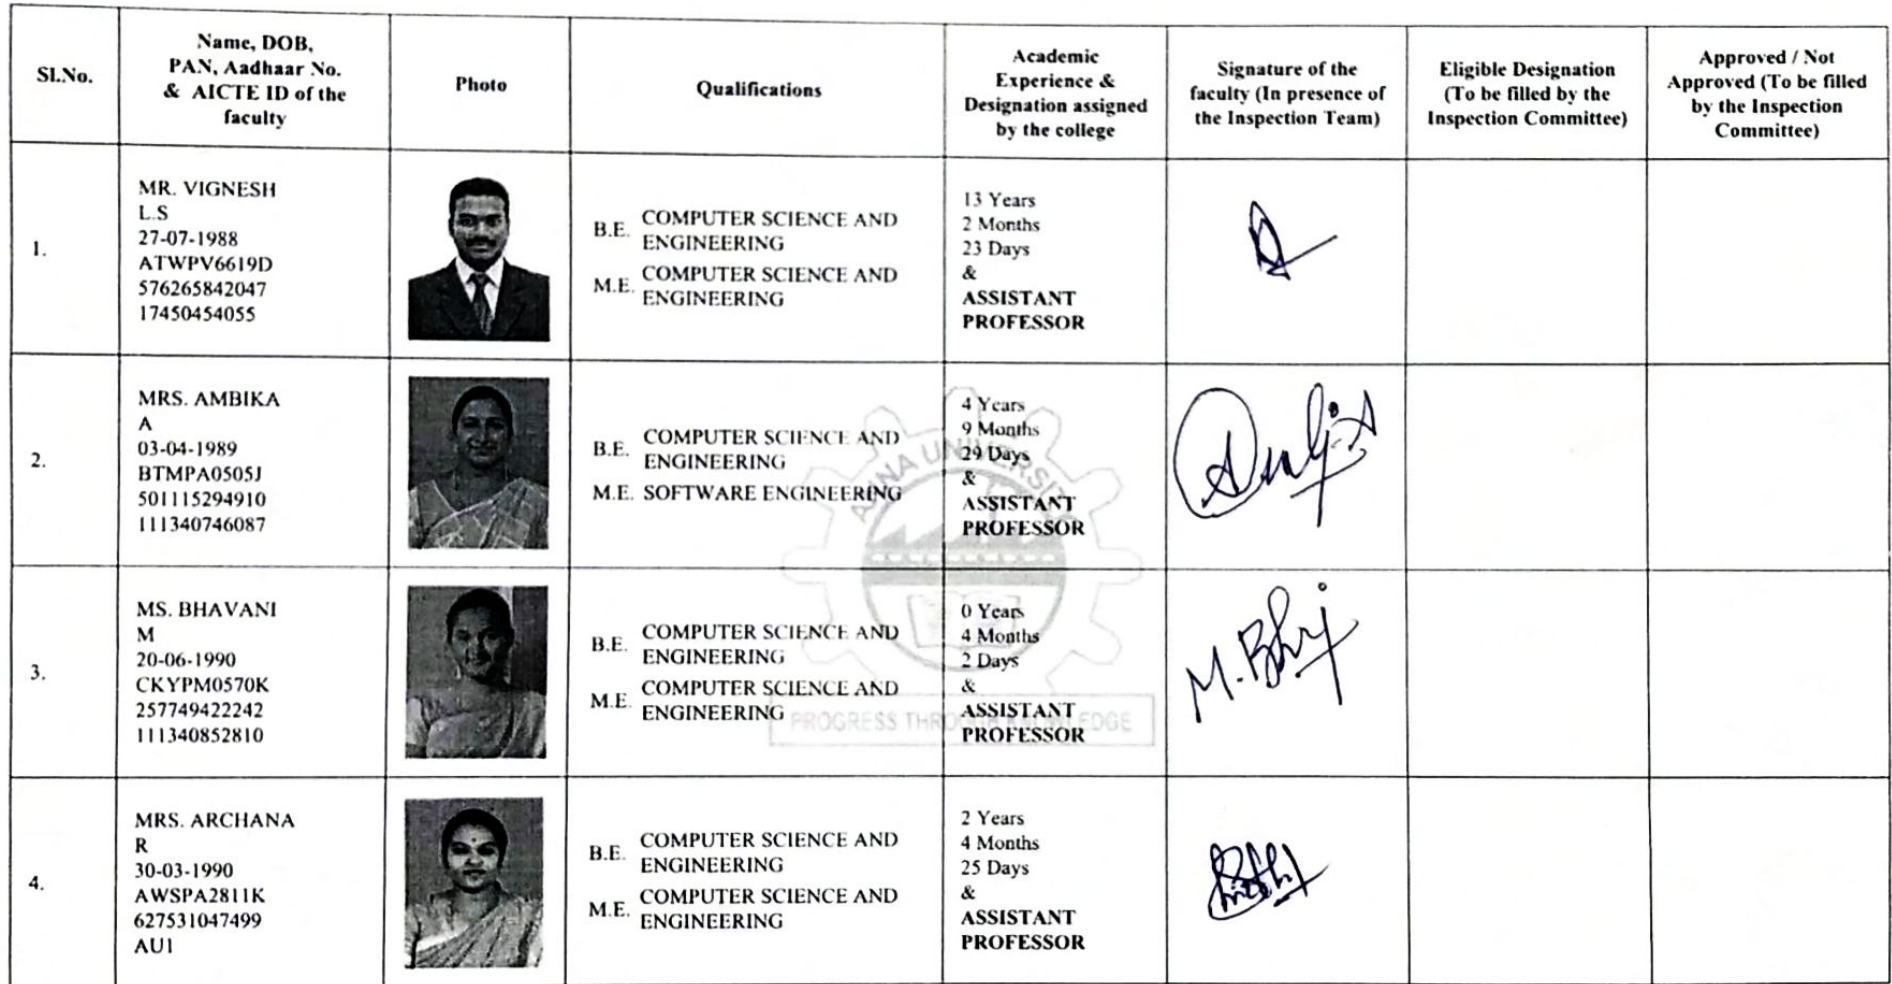 Sl.No.
Name, DOB,
PAN, Aadhaar No.
& AICTE ID of the
faculty
Photo
Qualifications
Academic
Experience &
Designation assigned
by the college
Signature of the
faculty (In presence of
the Inspection Team)
Eligible Designation
(To be filled by the
Inspection Committee)
Approved / Not
Approved (To be filled
by the Inspection
Committee)
1.
MR. VIGNESH
L.S
27-07-1988
ATWPV6619D
576265842047
17450454055
B.E. COMPUTER SCIENCE AND
ENGINEERING
M.E. COMPUTER SCIENCE AND
ENGINEERING
13 Years
2 Months
23 Days
&
ASSISTANT
PROFESSOR
2.
MRS. AMBIKA
A
03-04-1989
BTMPA0505J
501115294910
111340746087
B.E. COMPUTER SCIENCE AND
ENGINEERING
M.E. SOFTWARE ENGINEERING
4 Years
9 Months
29 Days
&
ASSISTANT
PROFESSOR
ANNA UNIVERSITY
3.
MS. BHAVANI
M
20-06-1990
CKYPM0570K
257749422242
111340852810
B.E. COMPUTER SCIENCE AND
ENGINEERING
M.E. COMPUTER SCIENCE AND
ENGINEERING
0 Years
4 Months
2 Days
&
ASSISTANT
PROFESSOR
PROGRESS THROUGH KNOWLEDGE
4.
MRS. ARCHANA
R
30-03-1990
AWSPA2811K
627531047499
AU1
B.E. COMPUTER SCIENCE AND
ENGINEERING
M.E. COMPUTER SCIENCE AND
ENGINEERING
2 Years
4 Months
25 Days
&
ASSISTANT
PROFESSOR